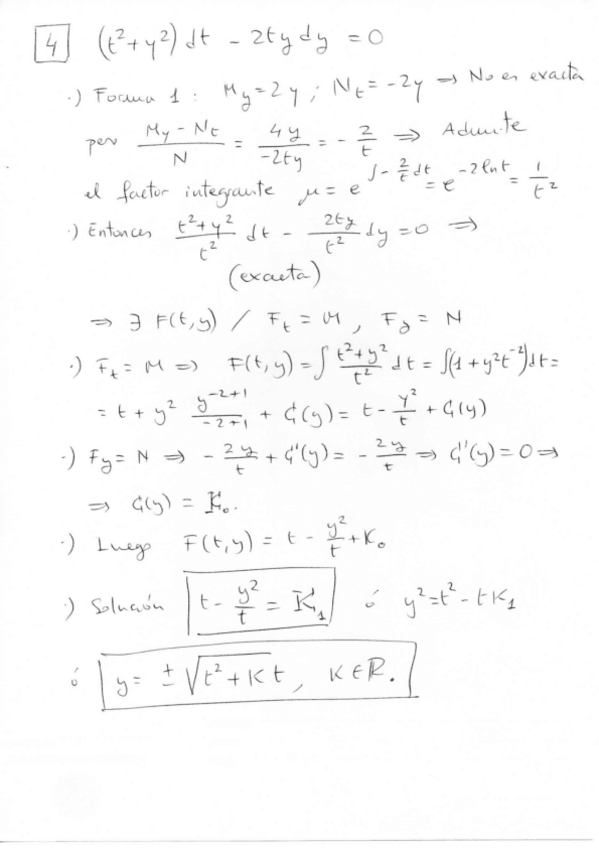 4 (t²+y²) dt - 2ty dy = 0
·) Forma 1 : My = 2y ; Nt = -2y ⇒ No es exacta
pero (My - Nt)/N = 4y/(-2ty) = - 2/t ⇒ Admite
el factor integrante μ = e^(∫ - 2/t dt) = e^(-2 ln t) = 1/t²
·) Entonces (t²+y²)/t² dt - 2ty/t² dy = 0 ⇒
(exacta)
⇒ ∃ F(t,y) / Ft = M , Fy = N
·) Ft = M ⇒ F(t,y) = ∫ (t²+y²)/t² dt = ∫(1 + y²t⁻²)dt =
= t + y² y^(-2+1)/(-2+1) + G(y) = t - y²/t + G(y)
·) Fy = N ⇒ - 2y/t + G'(y) = - 2y/t ⇒ G'(y) = 0 ⇒
⇒ G(y) = K₀.
·) Luego F(t,y) = t - y²/t + K₀
·) Solución t - y²/t = K₁ ó y² = t² - tK₁
ó y = ± √(t² + K t) , K ∈ ℝ.